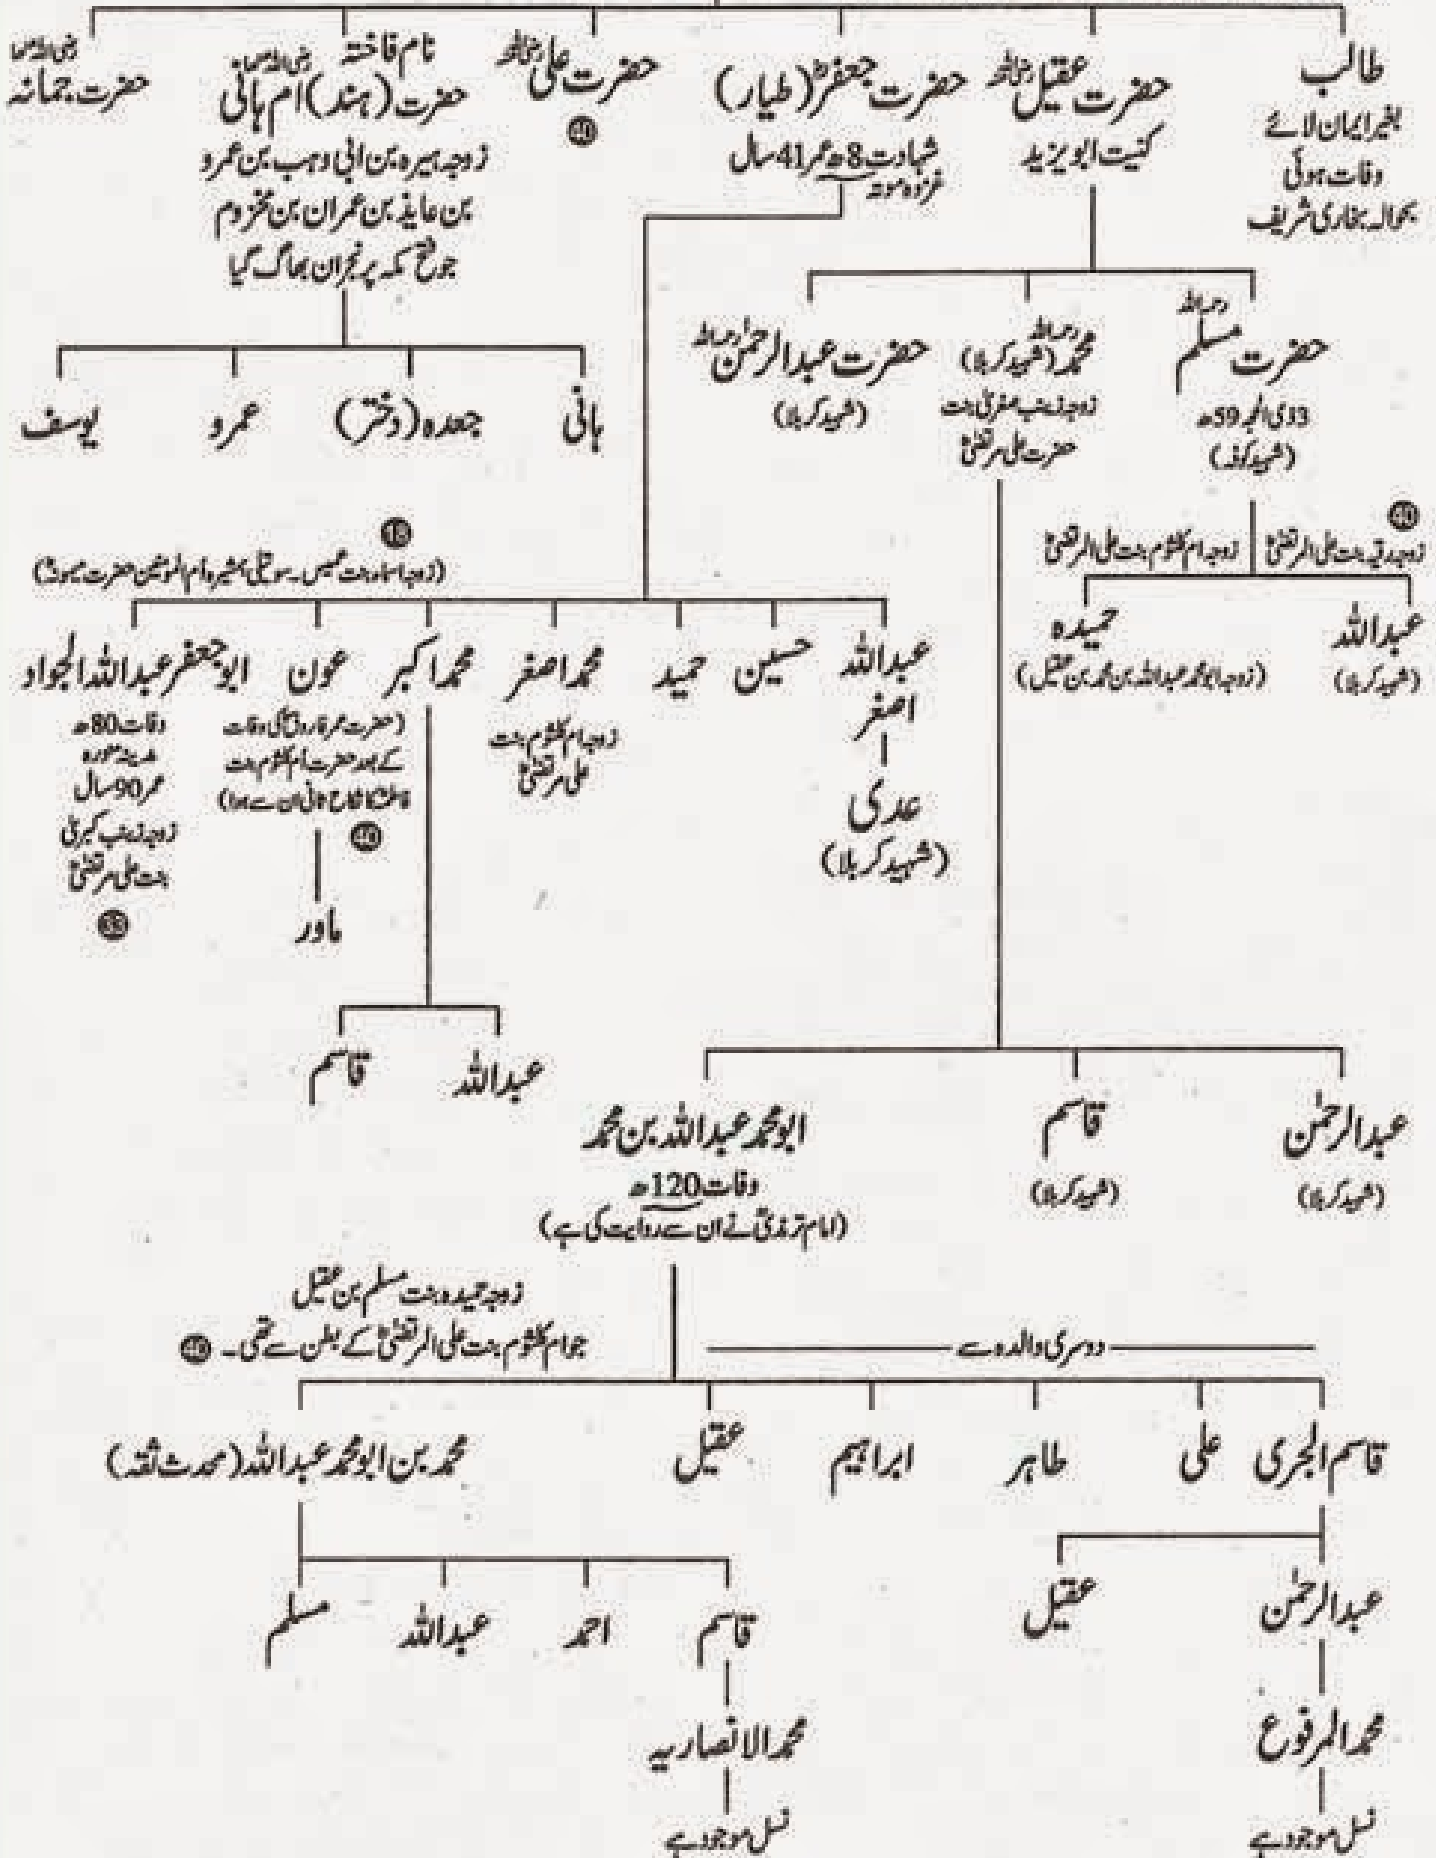 طالب
بغیر ایمان لائے
وفات ہوئی
بحوالہ بخاری شریف
حضرت عقیلؓ
کنیت ابو یزید
حضرت جعفرؓ (طیار)
شہادت 8ھ عمر 41 سال
غزوہ موتہ
حضرت علیؓ
نام فاختہ
حضرت (ہند) ام ہانی
زوجہ ہبیرہ بن ابی وہب بن عمرو
بن عایذ بن عمران بن مخزوم
جو فتح مکہ پر نجران بھاگ گیا
حضرت جمانہ
ہانی
جعدہ (دختر)
عمرو
یوسف
حضرت مسلم رحمہ اللہ
3 ذی الحجہ 59ھ
(شہید کوفہ)
محمد رحمہ اللہ (شہید کربلا)
زوجہ زینب صغریٰ بنت
حضرت علی مرتضیٰؓ
حضرت عبدالرحمٰن رحمہ اللہ
(شہید کربلا)
40
زوجہ رقیہ بنت علی المرتضیٰؓ
زوجہ ام کلثوم بنت علی المرتضیٰؓ
عبداللہ
(شہید کربلا)
حمیدہ
(زوجہ ابو محمد عبداللہ بن محمد بن عقیل)
18
(زوجہ اسماء بنت عمیس۔ سوتیلی ہمشیرہ ام المومنین حضرت میمونہؓ)
عبداللہ
اصغر
عدی
(شہید کربلا)
حسین
حمید
محمد اصغر
زوجہ ام کلثوم بنت
علی مرتضیٰؓ
محمد اکبر
عون
(حضرت عمر فاروقؓ کی وفات
کے بعد حضرت ام کلثوم بنت
فاطمہؓ کا نکاح ثانی ان سے ہوا)
ماور
ابو جعفر عبداللہ الجواد
وفات 80ھ
مدینہ منورہ
عمر 90 سال
زوجہ زینب کبریٰ
بنت علی مرتضیٰؓ
عبداللہ
قاسم
عبدالرحمٰن
(شہید کربلا)
قاسم
(شہید کربلا)
ابو محمد عبداللہ بن محمد
وفات 120ھ
(امام ترمذیؒ نے ان سے روایت کی ہے)
زوجہ حمیدہ بنت مسلم بن عقیل
جو ام کلثوم بنت علی المرتضیٰؓ کے بطن سے تھی۔
دوسری والدہ سے
قاسم الجری
علی
طاہر
ابراہیم
عقیل
محمد بن ابو محمد عبداللہ (محدث ثقہ)
عبدالرحمٰن
عقیل
قاسم
احمد
عبداللہ
مسلم
محمد المرفوع
محمد الانصاریہ
نسل موجود ہے
نسل موجود ہے